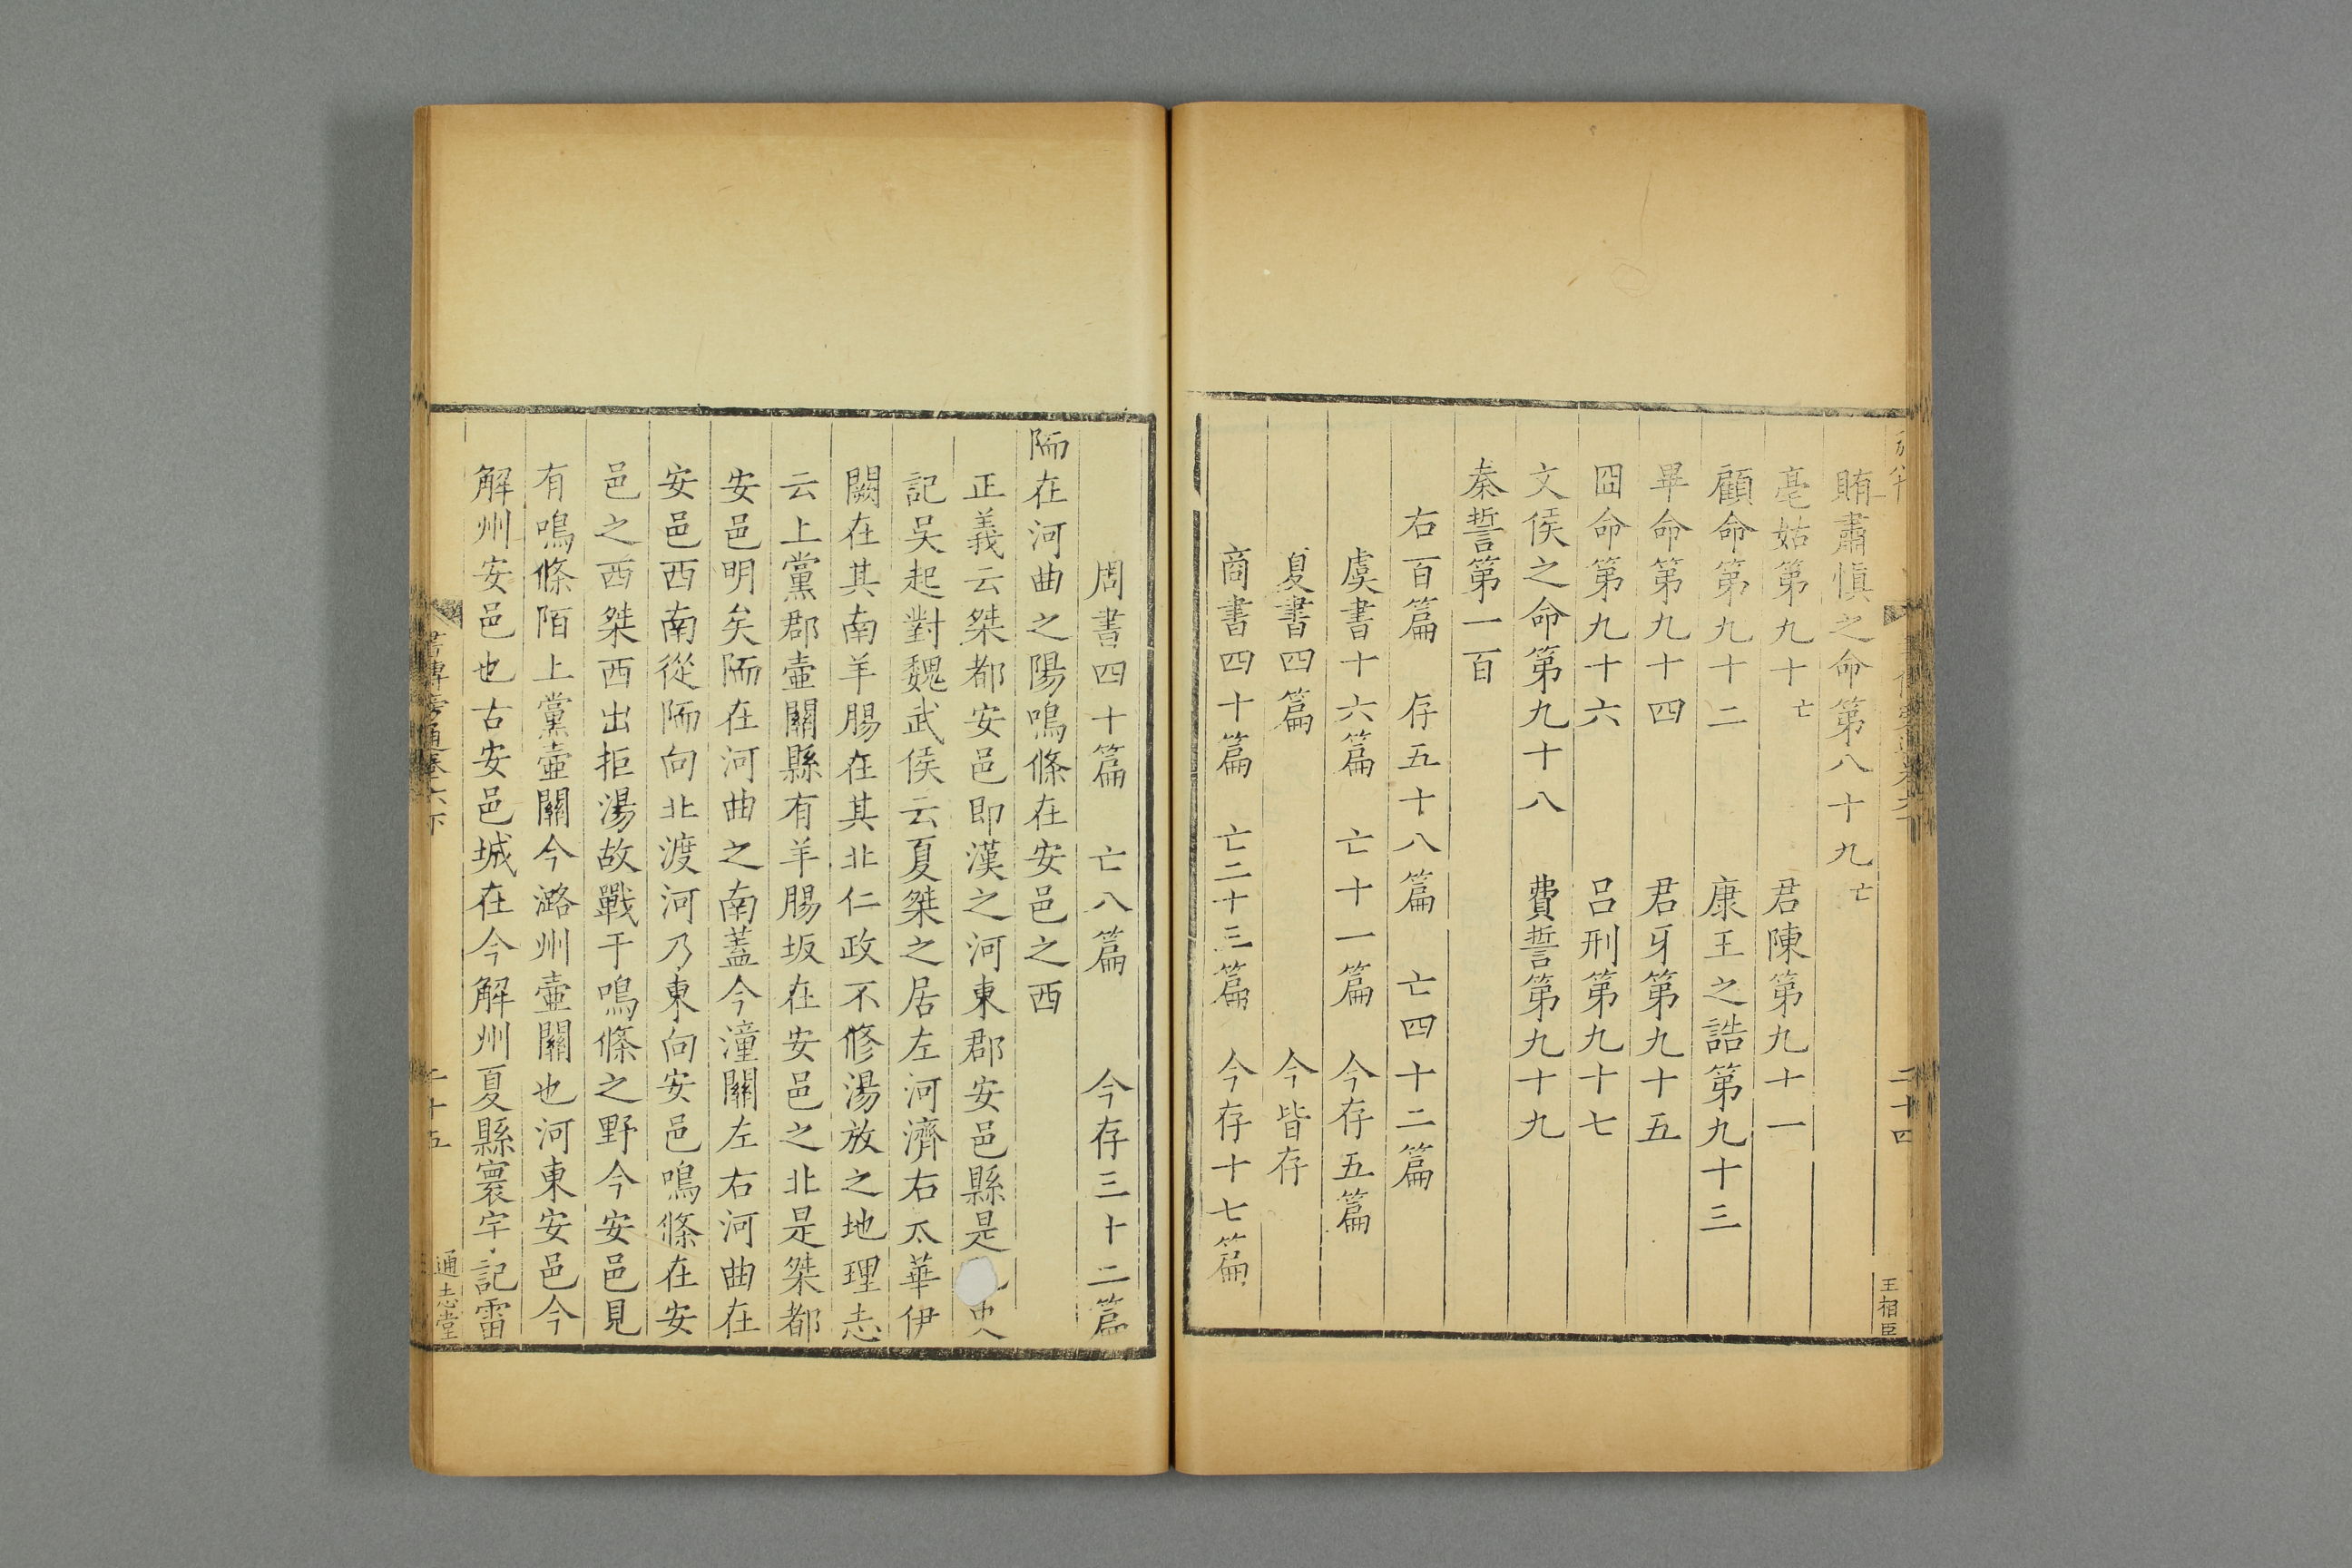 賄肅愼之命第八十九亡
亳姑第九十亡 君陳第九十一
顧命第九十二 康王之誥第九十三
畢命第九十四 君牙第九十五
冏命第九十六 呂刑第九十七
文侯之命第九十八 費誓第九十九
秦誓第一百
右百篇 存五十八篇 亡四十二篇
虞書十六篇 亡十一篇 今存五篇
夏書四篇 今皆存
商書四十篇 亡二十三篇 今存十七篇
二十四
王相臣
周書四十篇 亡八篇 今存三十二篇
陑在河曲之陽鳴條在安邑之西
正義云桀都安邑即漢之河東郡安邑縣是史
記吳起對魏武侯云夏桀之居左河濟右太華伊
闕在其南羊腸在其北仁政不修湯放之地理志
云上黨郡壷關縣有羊腸坂在安邑之北是桀都
安邑明矣陑在河曲之南蓋今潼關左右河曲在
安邑西南從陑向北渡河乃東向安邑鳴條在安
邑之西桀西出拒湯故戰于鳴條之野今安邑見
有鳴條陌上黨壷關今潞州壷關也河東安邑今
解州安邑也古安邑城在今解州夏縣寰宇記雷
書傳旁通卷六下
二十五
通志堂